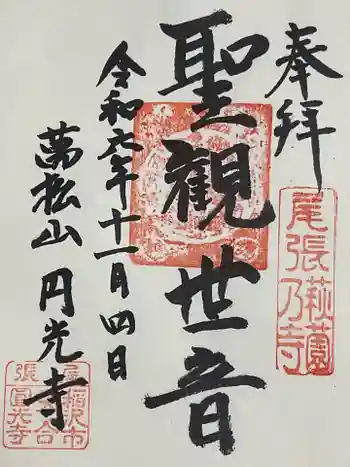 奉拝
尾張萩園乃寺
聖觀世音
令和六年十一月四日
萬松山 円光寺